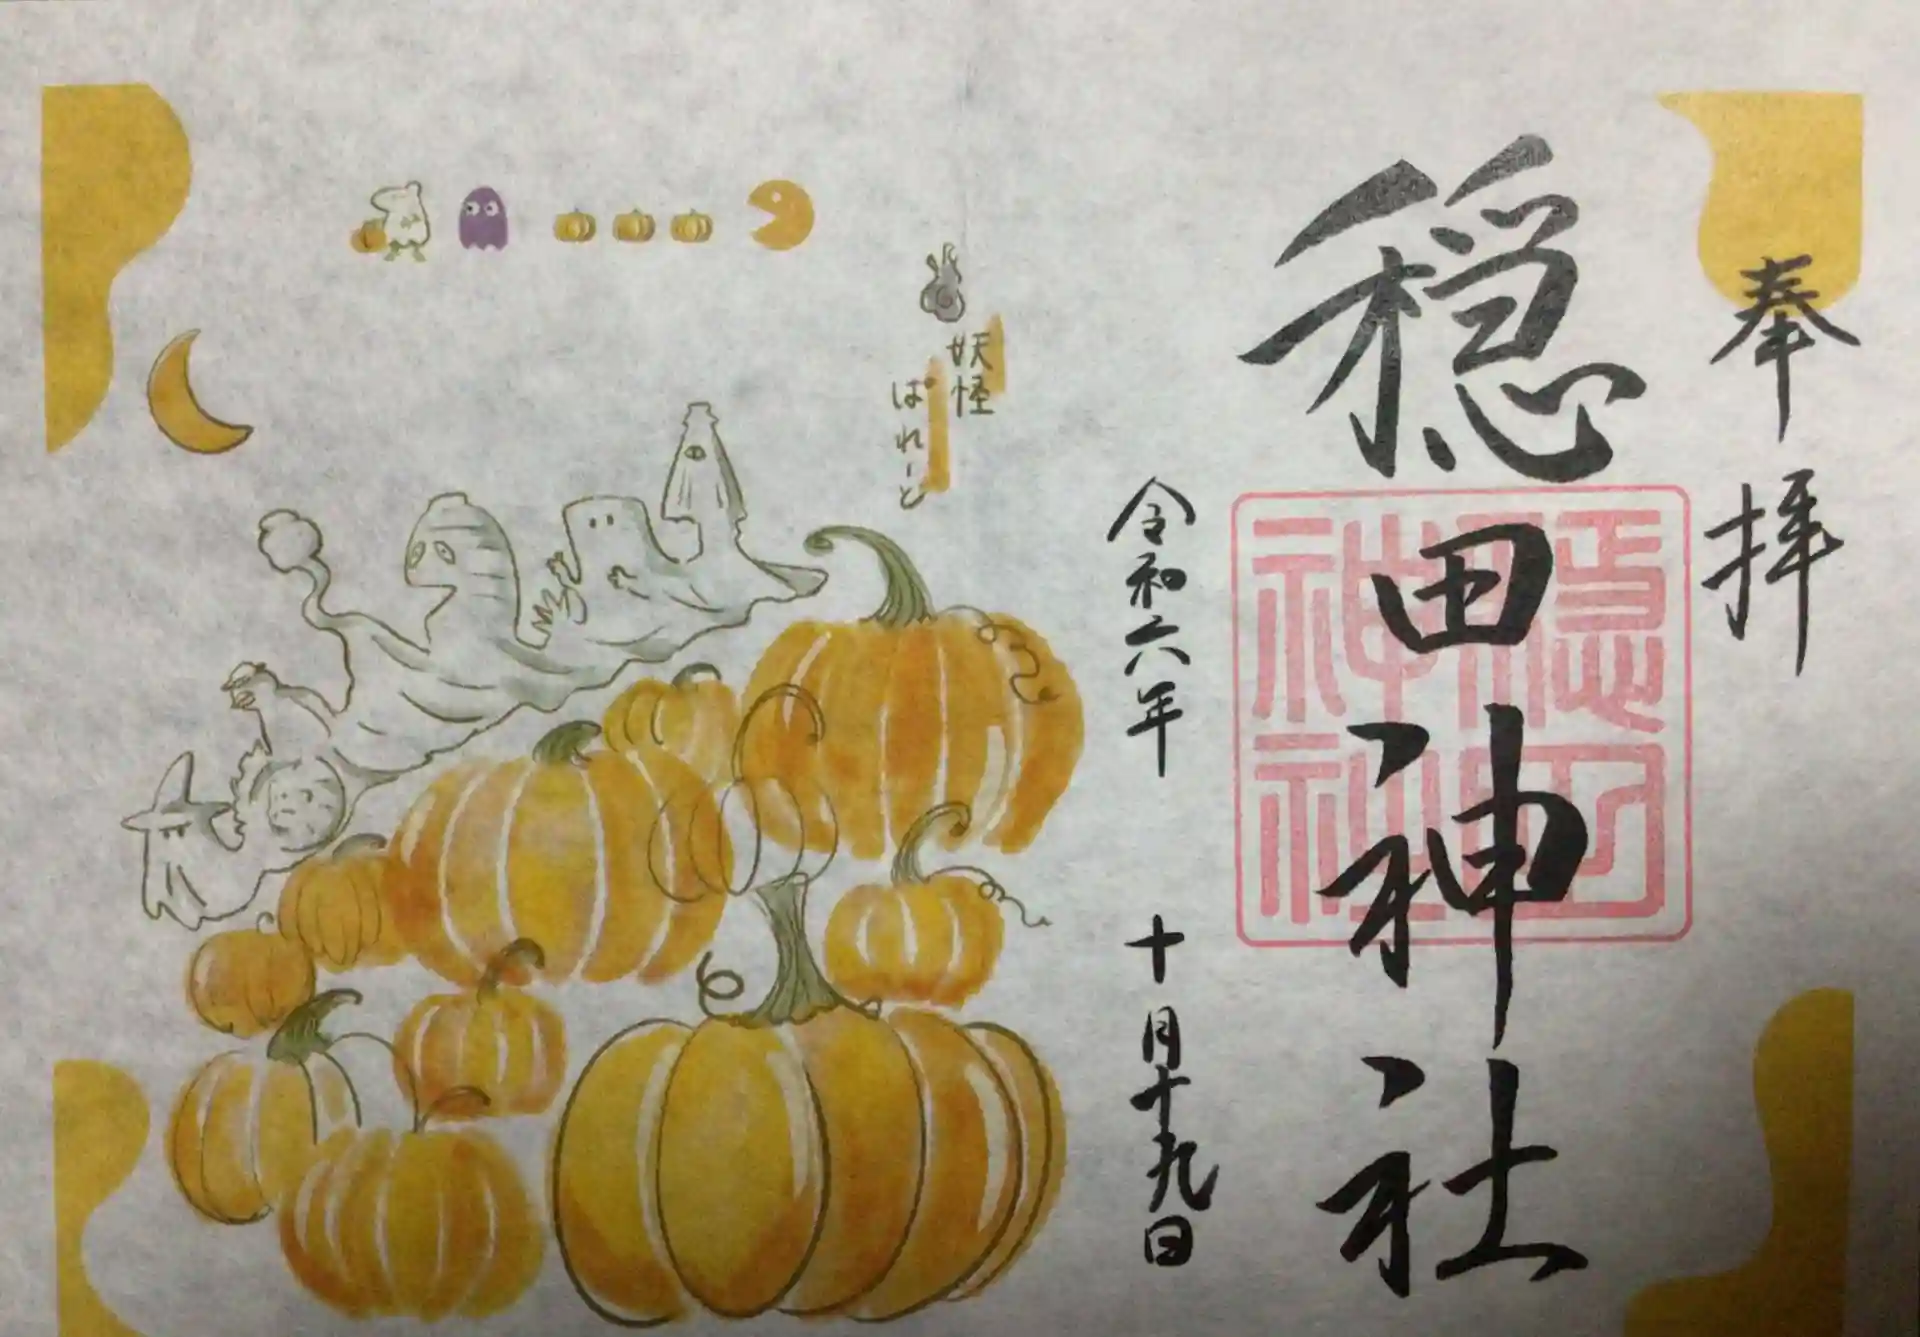 奉拝
穏田神社
穏田
神社
令和六年 十月十九日
妖怪
ぱれーど